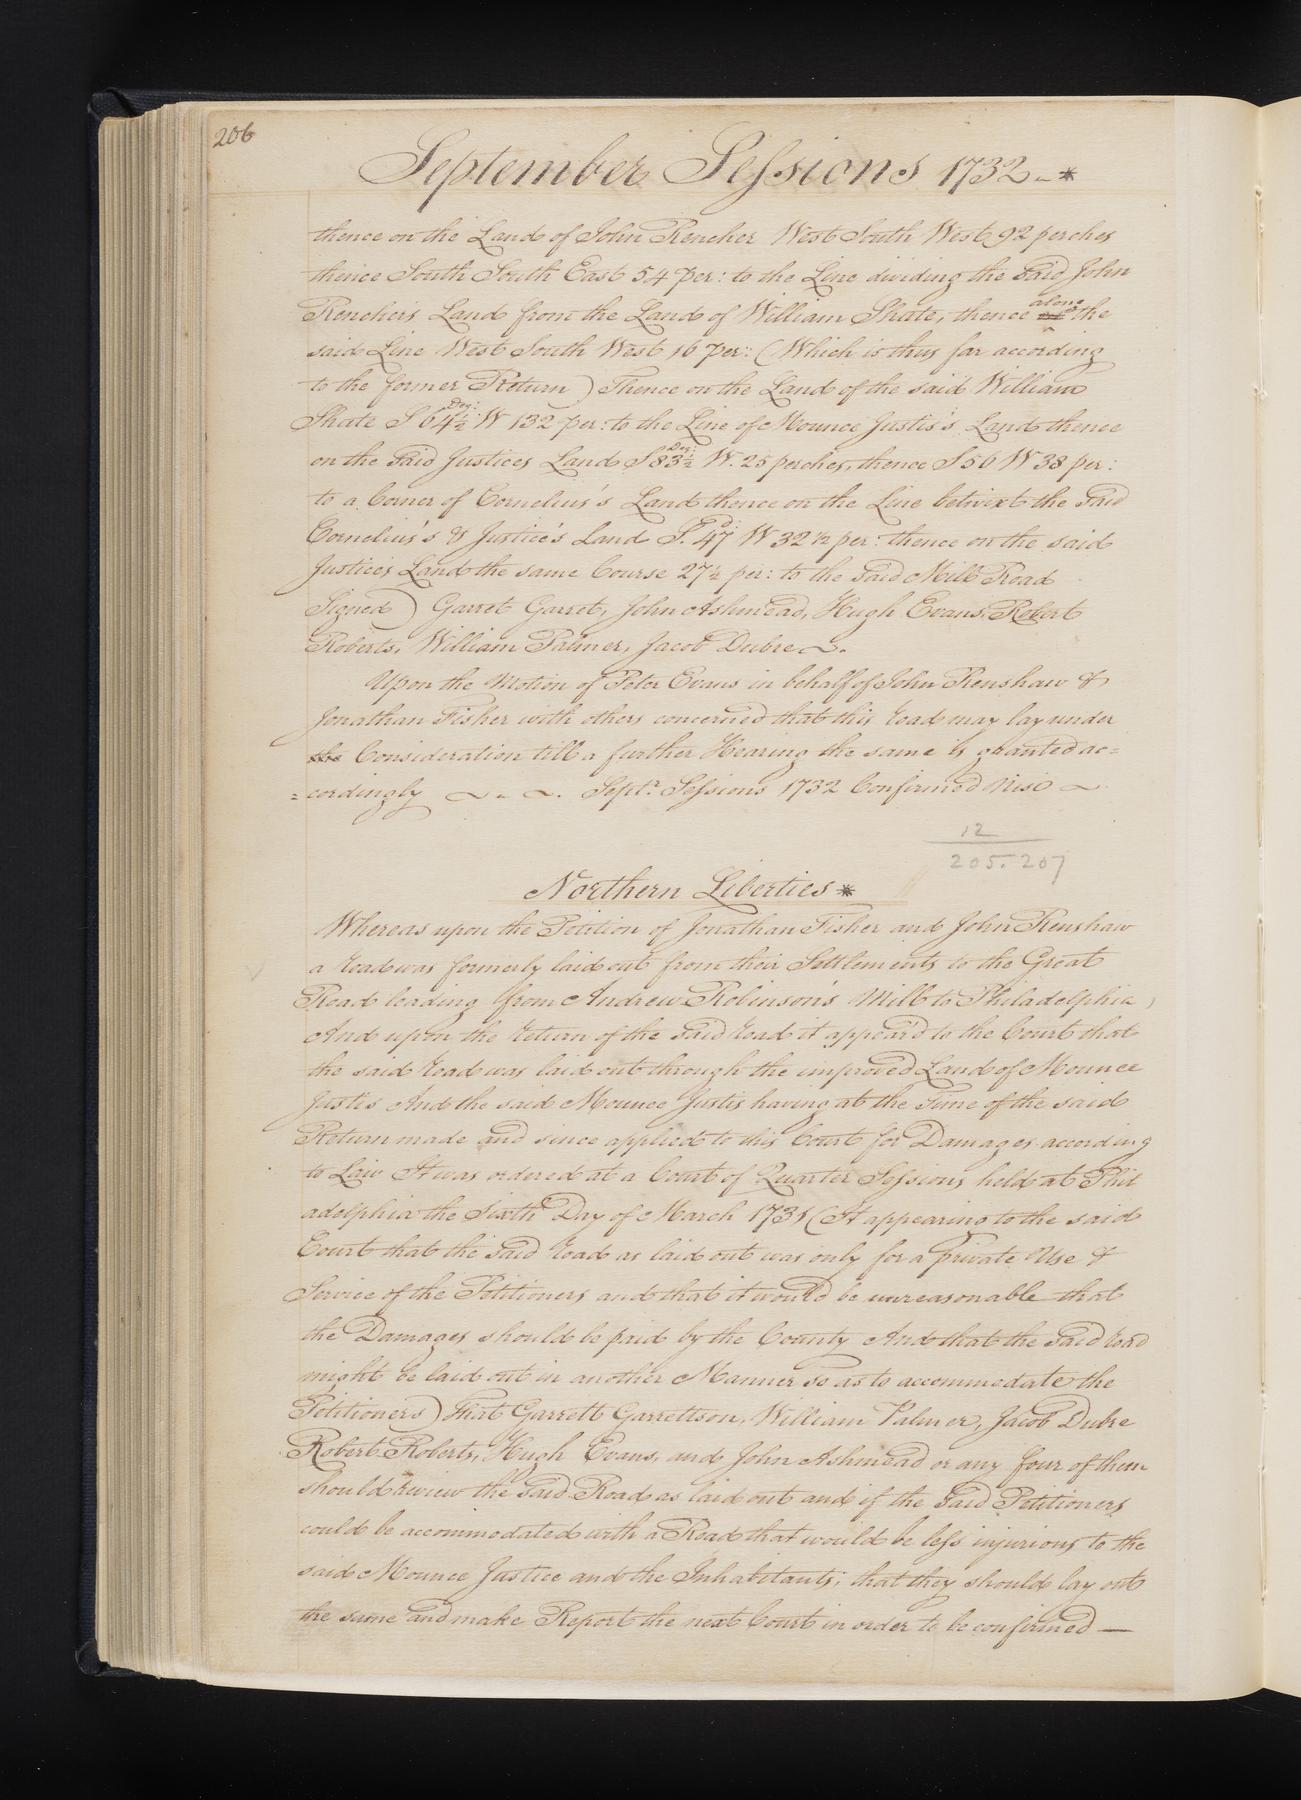 206
September Sessions 1732 -*
thence on the Land of John Rencher West South West 92 perches
thence South South East 54 per: to the Line dividing the said John
Renchers Land from the Land of William Shate, thence along the
said Line West South West 16 per: (Which is thus far according
to the former Return) Thence on the Land of the said William
Shate S 64½ Deg: W 132 per: to the Line of Mounce Justis's Land thence
on the said Justices Land S 83½ Deg: W. 25 perches, thence S 50 W 38 per:
to a Corner of Cornelius's Land thence on the Line betwixt the said
Cornelius's & Justice's Land S. 47 D: W 32 ½ per: thence on the said
Justices Land the same Course 27½ per: to the said Mill Road
Signed) Garret Garret, John Ashmead, Hugh Evans, Robert
Roberts, William Palmer, Jacob Dubre ~.
Upon the Motion of Peter Evans in behalf of John Renshaw &
Jonathan Fisher with others concerned that this road may lay under
the Consideration till a further Hearing the same is granted ac=
=cordingly ~ - ~. Septr. Sessions 1732 Confirmed Nisi ~
12
205. 207
Northern Liberties *
Whereas upon the Petition of Jonathan Fisher and John Renshaw
a road was formerly laid out from their Settlements to the Great
Road leading from Andrew Robinson's Mill to Philadelphia,
And upon the return of the said road it appear'd to the Court that
the said road was laid out through the improved Land of Mounce
Justis And the said Mounce Justis having at the Time of the said
Return made and since applied to this Court for Damages according
to Law It was ordered at a Court of Quarter Sessions held at Phil
adelphia the Sixth Day of March 1731 (It appearing to the said
Court that the said road as laid out was only for a private Use &
Service of the Petitioners and that it would be unreasonable that
the Damages should be paid by the County And that the said road
might be laid out in another Manner so as to accommodate the
Petitioners) That Garrett Garrettson, William Palmer, Jacob Dubre
Robert Roberts, Hugh Evans, and John Ashmead or any four of them
should review the said Road as laid out and if the said Petitioners
could be accommodated with a Road that would be less injurious to the
said Mounce Justice and the Inhabitants; that they should lay out
the same and make Report the next Court in order to be confirmed —